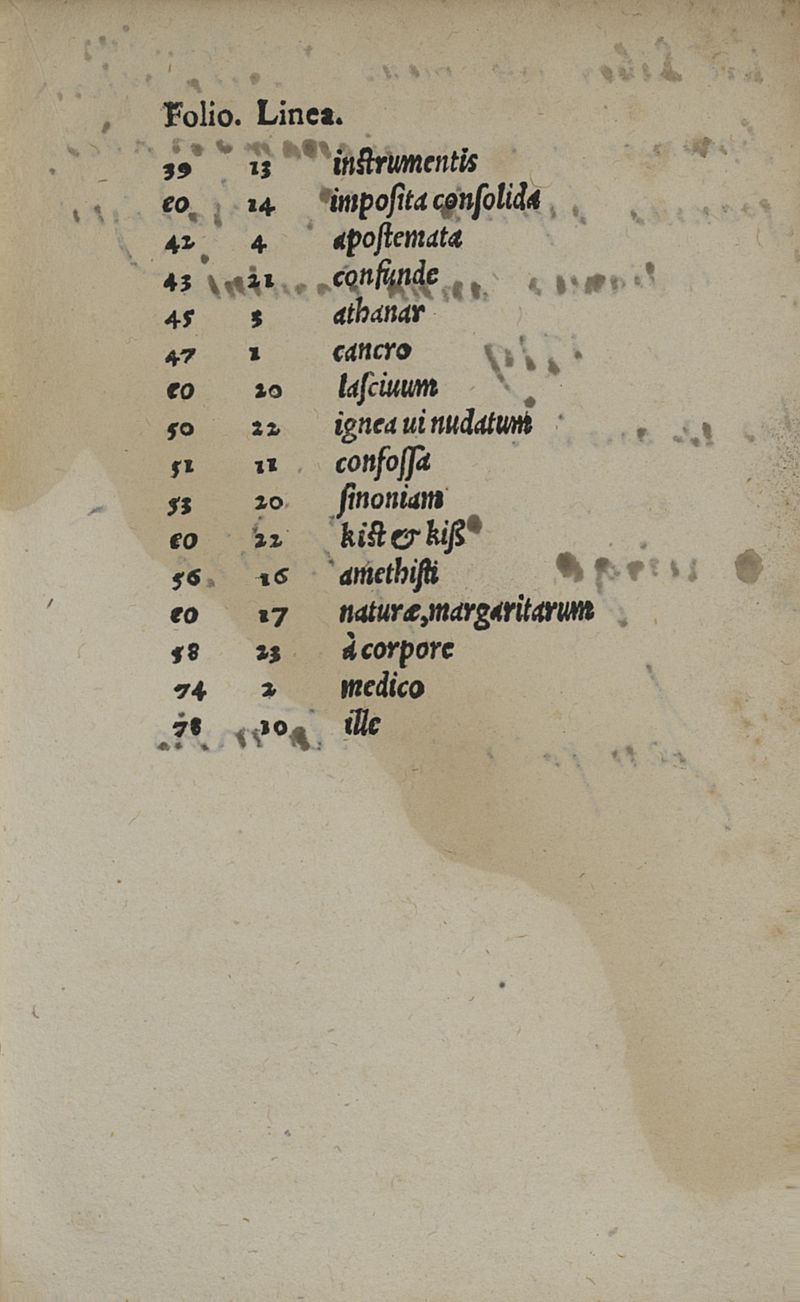 Folio. Linea.
39 13 inſtrumentis
eo 14 impoſita conſolida
42 4 apoſtemata
43 21 confunde
45 3 athanar
47 1 cancro
eo 20 laſciuum
50 22 ignea ui nudatum
51 11 confoſſa
53 20 ſinoniam
eo 22 kiſt & kiſt
56 16 amethiſti
eo 17 naturæ,margaritarum
58 23 à corpore
74 2 medico
78 10 ille